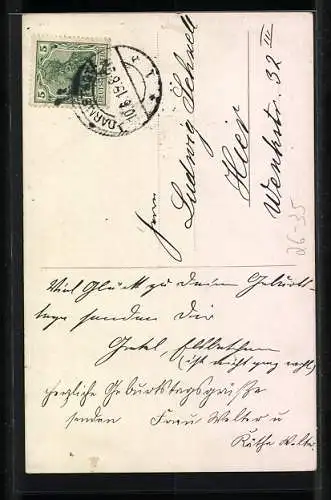 5
DARMST
10.6.19 8-9
Herrn
Ludwig Schnell
Hier
Wenckstr. 32 III
26-35
Viel Glück zu Deinem Geburts-
tage senden Dir
Gretel,
(ist nicht ganz recht)
herzliche Geburtstagsgrüße
senden Frau Walter u
Käthe Walter